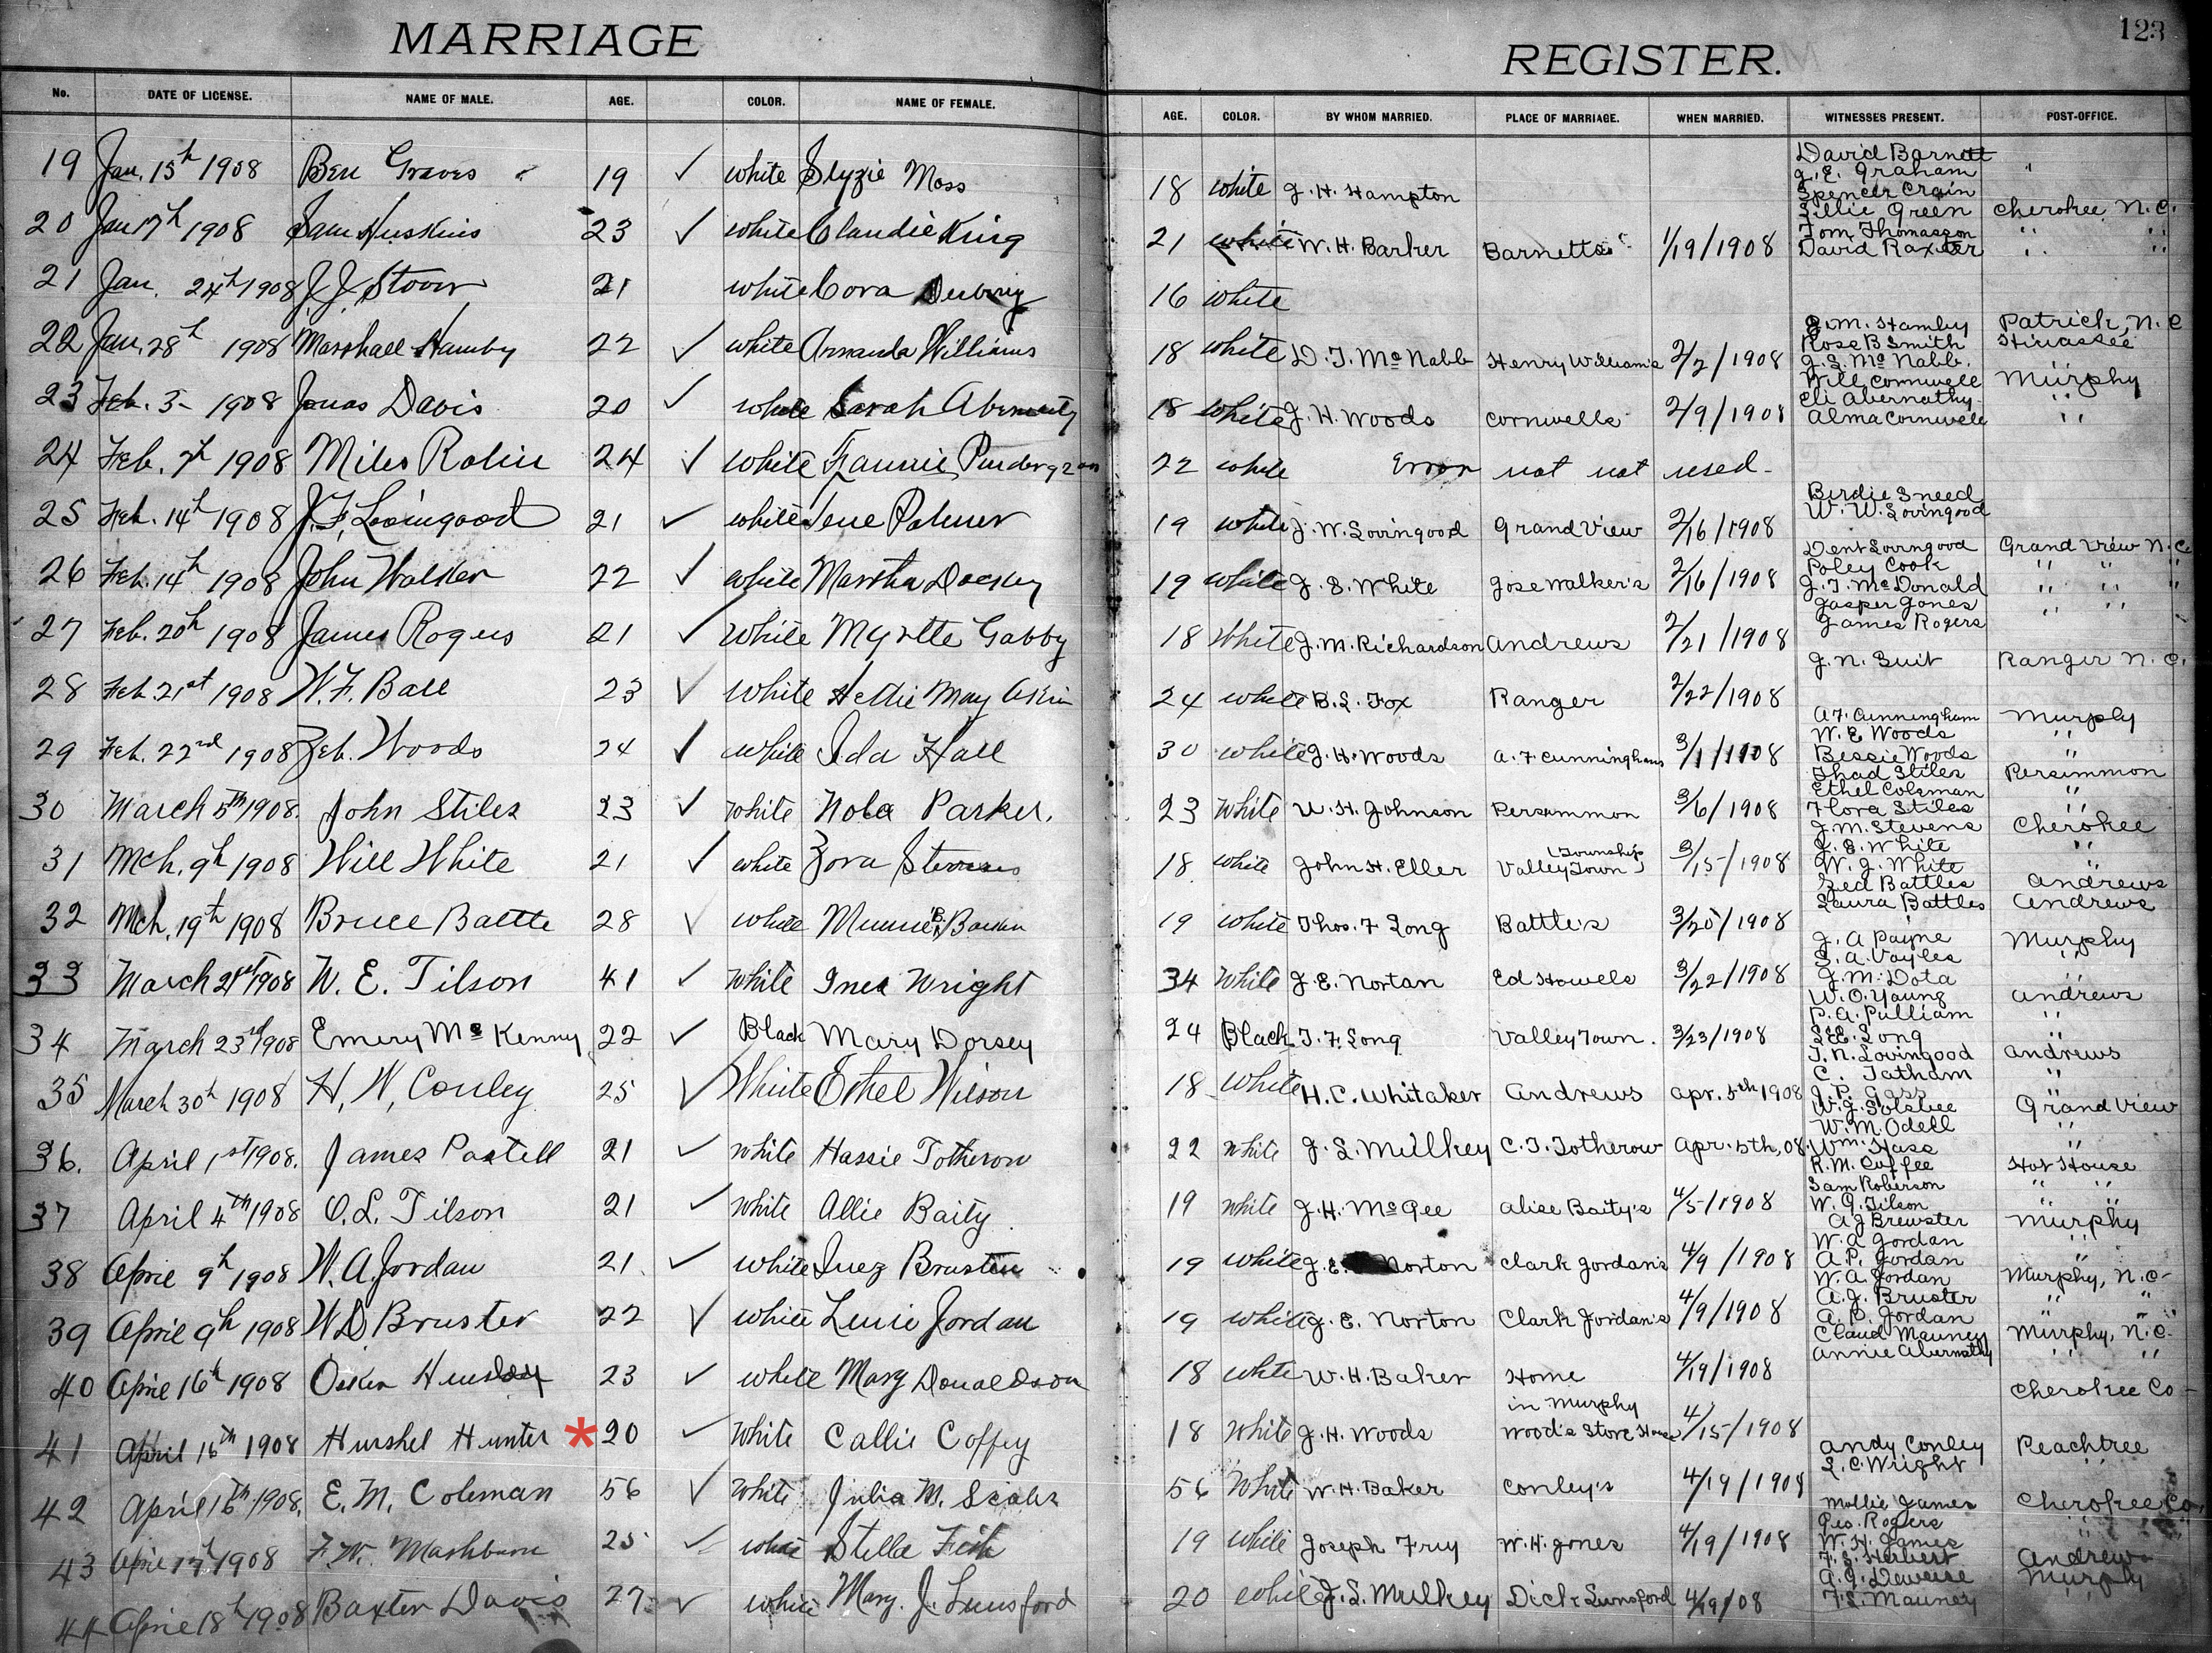 MARRIAGE
REGISTER.
123
No. DATE OF LICENSE. NAME OF MALE. AGE. COLOR. NAME OF FEMALE. AGE. COLOR. BY WHOM MARRIED. PLACE OF MARRIAGE. WHEN MARRIED. WITNESSES PRESENT. POST-OFFICE.
19 Jan. 15th 1908 Ben Graves 19 ✓ white Slyzie Moss 18 white J. H. Hampton
David Barnett
J. E. Graham
Spencer Crain
20 Jan 17th 1908 Sam Huskins 23 ✓ white Claudie King 21 white W. H. Barker Barnetts 1/19/1908
Lillie Green Cherokee, N. C.
Tom Thomasson " "
David Raxter " "
21 Jan. 24th 1908 J J Stover 21 white Cora 16 white
22 Jan. 28th 1908 Marshall Hamby 22 ✓ white Amanda Williams 18 white D. T. McNabb Henry William's 2/2/1908
J. M. Hamby Patrick, N. C
Rose B Smith Hiwassee
J. S. McNabb.
23 Feb. 3- 1908 Jonas Davis 20 ✓ white Sarah 18 white J. H. Woods Cornwells 2/9/1908
Will Cornwell Murphy
Eli Abernathy "
Alma Cornwell "
24 Feb. 7th 1908 Miles 24 ✓ white Fannie 22 white Error not not used-
25 Feb. 14th 1908 J. F. Lovingood 21 ✓ white Jene Palmer 19 white J. W. Lovingood Grand View 2/16/1908
Birdie Sneed
W. W. Lovingood
26 Feb. 14th 1908 John Walker 22 ✓ white Martha Dockery 19 white J. S. White Jose Walker's 2/16/1908
Dent Lovingood Grand View N. C.
Poley Cook " " "
J. T. McDonald " " "
27 Feb. 20th 1908 James Rogers 21 ✓ White Myrtle Gabby 18 White J. M. Richardson Andrews 2/21/1908
Jasper Jones " "
James Rogers
28 Feb. 21st 1908 W. F. Ball 23 ✓ white Hettie May Akin 24 white B. L. Fox Ranger 2/22/1908
J. N. Suit Ranger N. C.
29 Feb. 22nd 1908 Zeb. Woods 24 ✓ white Ida Hall 30 white J. H. Woods A. F Cunninghams 3/1/1908
A. F. Cunningham Murphy
W. E Woods "
Bessie Woods "
30 March 5th 1908. John Stiles 23 ✓ white Nola Parker. 23 white W. H. Johnson Persimmon 3/6/1908
Thad Stiles Persimmon
Ethel Coleman "
Flora Stiles "
31 Mch. 9th 1908 Will White 21 ✓ white Zora Stevens 18 white John H. Eller Valley Town Township 3/15/1908
J. M. Stevens Cherokee
J. E. White "
W. J. White "
32 Mch. 19th 1908 Bruce Battle 28 ✓ white Minnie B. 19 white Thos. F Long Battle's 3/20/1908
Zed Battles Andrews
Laura Battles Andrews
33 March 21st 1908 W. E. Tilson 41 ✓ white Inez Wright 34 white J. E. Nortan Ed Howels 3/22/1908
J. A Payne Murphy
S. A. Voyles "
J. M. Dota "
34 March 23rd 1908 Emery McKenny 22 ✓ Black Mary Dorsey 24 Black T. F. Long Valley Town. 3/23/1908
W. O. Young Andrews
P. A. Pulliam "
S. E. Long "
35 March 30th 1908 H. W. Conley 25 ✓ White Ethel Wilson 18 White H. C. Whitaker Andrews Apr. 5th 1908
T. N. Lovingood Andrews
C. Tatham "
J. P. Gass "
36. April 1st 1908. James Postell 21 ✓ white Hassie Totherow 22 white J. L. Mulkey C. T. Totherow Apr. 5th, 08.
W. J. Solsbee Grand View
W. M. Odell "
Wm. Hass "
37 April 4th 1908 O. L. Tilson 21 ✓ white Allie Baity 19 white J. H. McGee Alise Baity's 4/5/1908
R. M. Coffee Hot House
Sam Roberson " "
W. G. Tilson " "
38 April 9th 1908 W. A. Jordan 21 ✓ white Inez Bruster 19 white J. E. Norton Clark Jordan's 4/9/1908
A J Brewster Murphy
W. A Jordan "
A. P. Jordan "
39 April 9th 1908 W D Bruster 22 ✓ white Lexie Jordan 19 white J. E. Norton Clark Jordan's 4/9/1908
W. A. Jordan Murphy, N. C-
A. J. Bruster " "
A. P. Jordan " "
40 April 16th 1908 Osker 23 ✓ white Mary Donaldson 18 white W. H. Baker Home 4/19/1908
Claud Mauney Murphy, N. C.
Annie Abernathy " "
41 April 16th 1908 Hurshel Hunter * 20 ✓ White Callie Coffey 18 White J. H. Woods in Murphy Wood's Store House 4/15/1908
Cherokee Co-
42 April 16th 1908. E. M. Coleman 56 ✓ White Julia M. Scales 56 White W. H. Baker Conley's 4/19/1908
Andy Conley Peachtree
L. C. Wright "
43 April 17th 1908 F. W. Mashburn 25 ✓ white Stella Fish 19 white Joseph Fry W. H. Jones 4/19/1908
Mollie James Cherokee Co,
Geo. Rogers "
W. H. James "
44 April 18th 1908 Baxter Davis 27 ✓ white Mary. J. Lunsford 20 white J. L. Mulkey Dick Lunsford 4/19/08
F. S. Herbert Andrews
A. J. Deweese Murphy
F. S. Mauney "